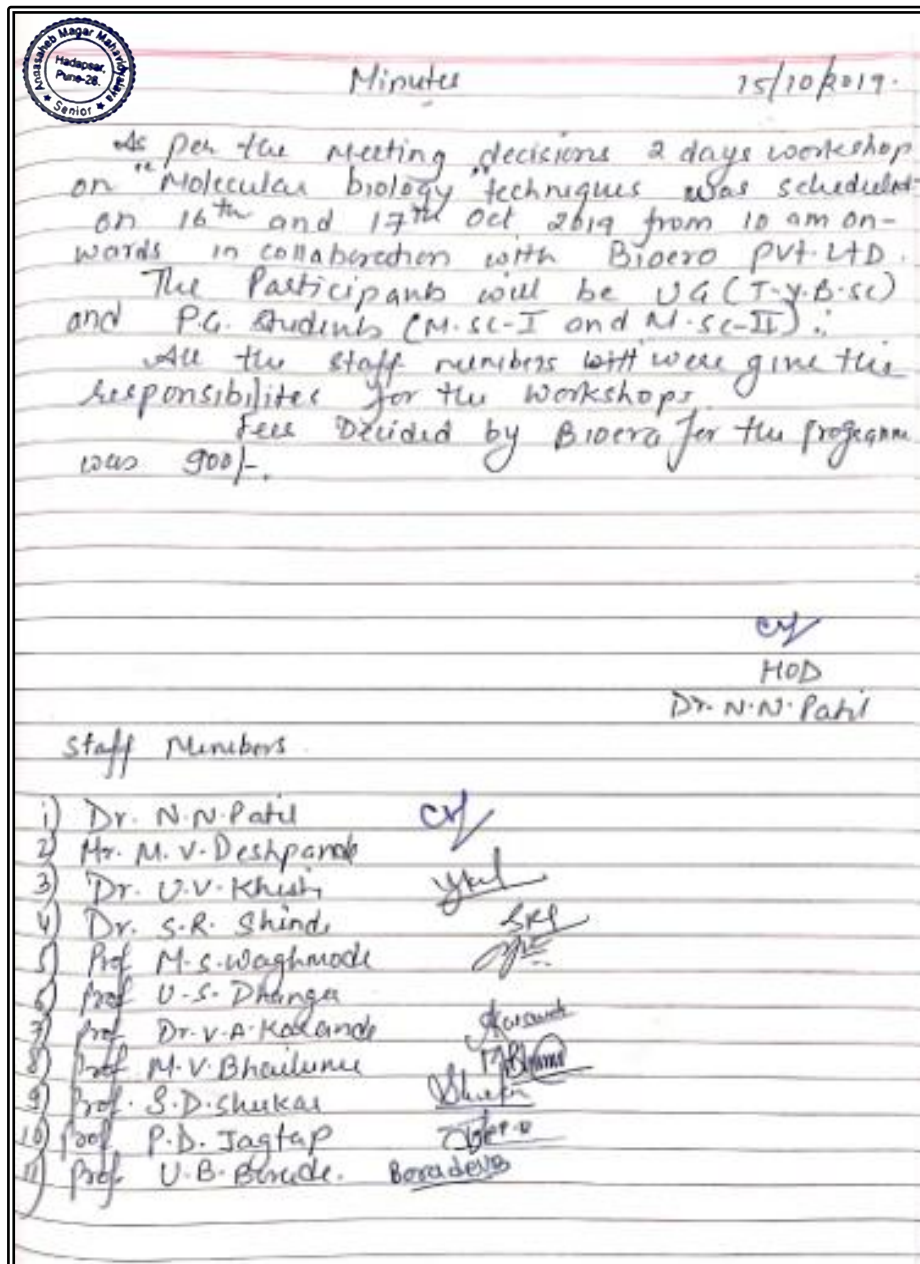 Annasaheb Magar Mahavidyalaya
Hadapsar,
Pune-28.
★ Senior ★
Minutes 15/10/2019.
As per the meeting decisions 2 days workshop
on "Molecular biology" techniques was scheduled
on 16th and 17th Oct 2019 from 10 am on-
words in collaberection with Bioero PVt. LTD.
The Participants will be UG (T.Y.B.sc)
and P.G. Students (M.sc-I and M.sc-II).
All the staff members were give the
responsibilites for the workshops.
Fees Dzcided by Bioera for the programme
was 900/-.
HOD
Dr. N.N. Patil
Staff Members.
1) Dr. N.N. Patil
2) Mr. M. V. Deshpande
3) Dr. U.V. Khisti
4) Dr. S.R. Shinde SRS
5) Prof M.S. Waghmode
6) Prof U.S. Dhanga
7) Prof Dr. V.A. Kalande
8) Prof M.V. Bhailume
9) Prof. S.D. Shukar
10) Prof P.D. Jagtap
11) Prof U.B. Borade. BoradeUB